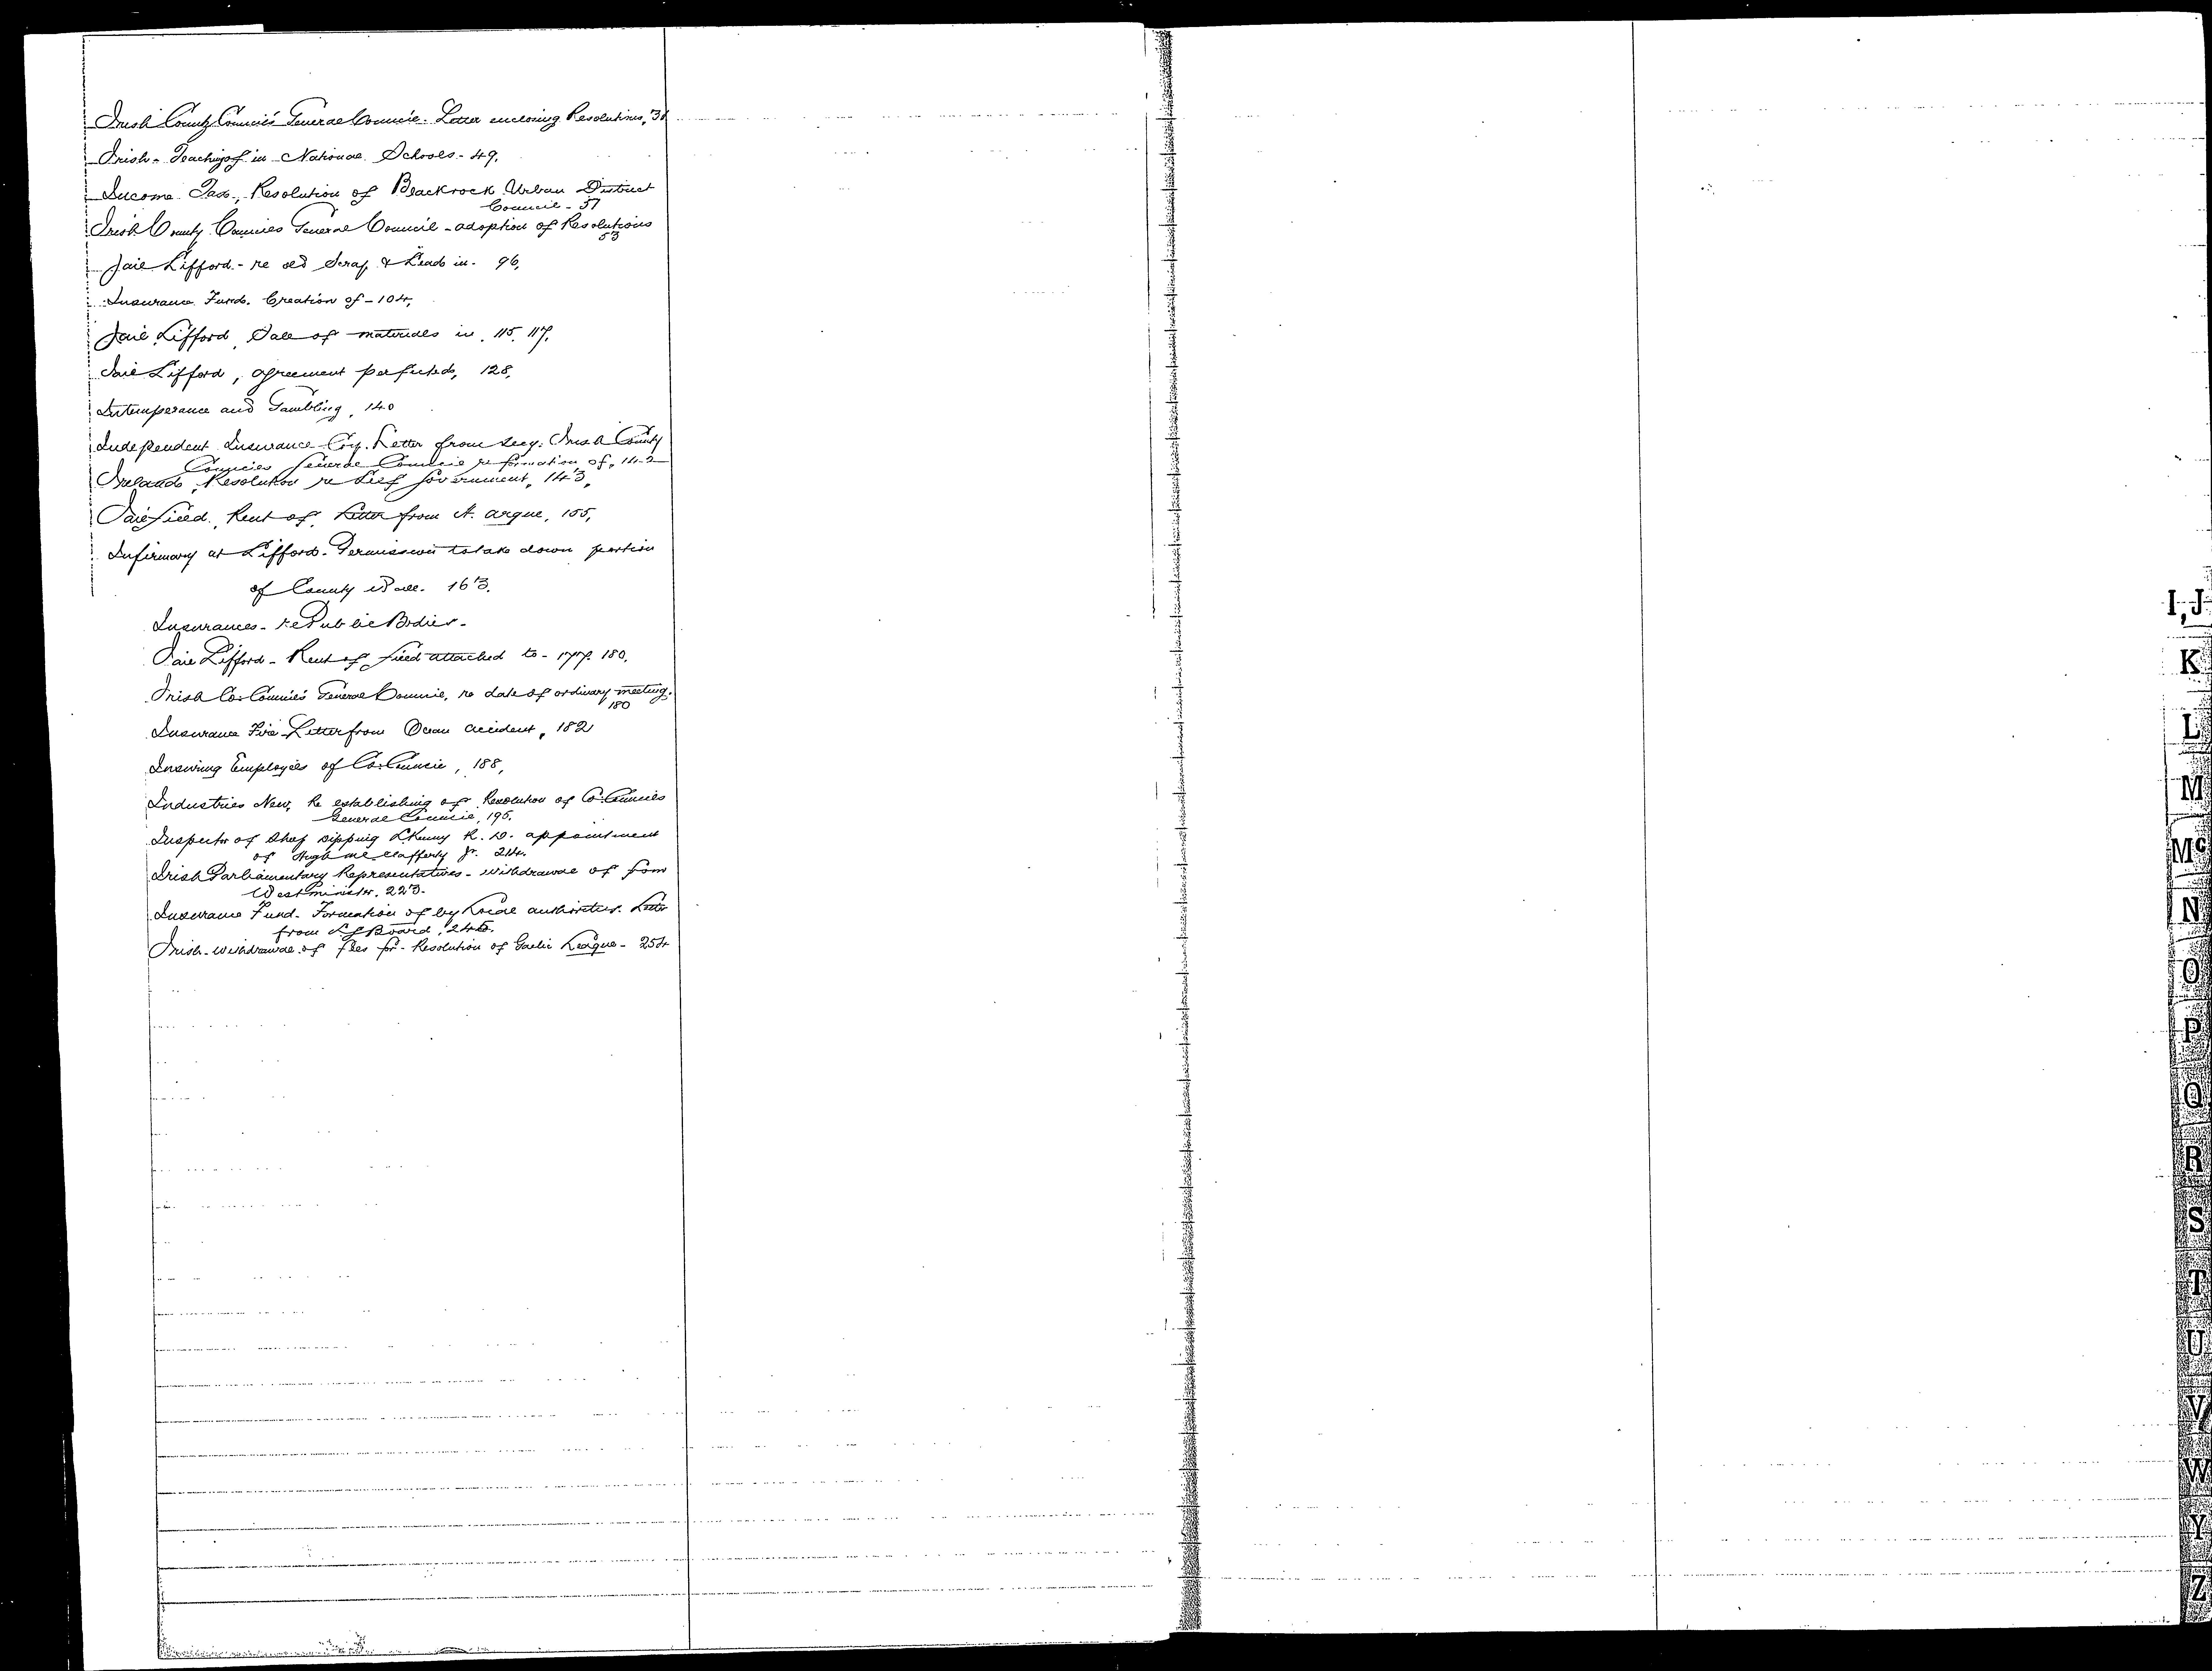 Irish County Councils General Council - Letter enclosing Resolutions, 31
Irish - Teaching of in National Schools - 49,
Income Tax, Resolution of Blackrock Urban District
Council - 57
Irish County Councils General Council - adoption of Resolutions
53
Jail Lifford - re old Scrap & Lead in - 96,
Insurance Fund. Creation of - 104,
Jail Lifford, Sale of materials in, 115, 117,
Jail Lifford, agreement perfected, 128,
Intemperance and Gambling, 140
Independent Insurance Coy. Letter from Secy. Irish County
Councils General Council re formation of, 142
Ireland, Resolution re Self Government, 143,
Jail field, Rent of, Letter from A. Argue, 155,
Infirmary at Lifford - Permission to take down portion
of County Wall. 163.
Insurances - re Public Bodies -
Jail Lifford - Rent of field attached to - 177, 180,
Irish Co: Councils General Council, re date of ordinary meeting.
180
Insurance Fire - Letter from Ocean Accident, 182
Insuring Employees of Co: Council, 188,
Industries New, Re establishing of Resolution of Co: Councils
General Council, 195.
Inspector of Sheep dipping L'Kenny R. D. appointment
of Hugh McClafferty Jr. 214.
Irish Parliamentary Representatives - withdrawal of from
Westminister. 223.
Insurance Fund - Formation of by Local authorities. Letter
from L G Board, 245.
Irish - withdrawal of fees for - Resolution of Gaelic League - 254
I, J
K
L
M
Mc
N
O
P
Q
R
S
T
U
V
W
Y
Z